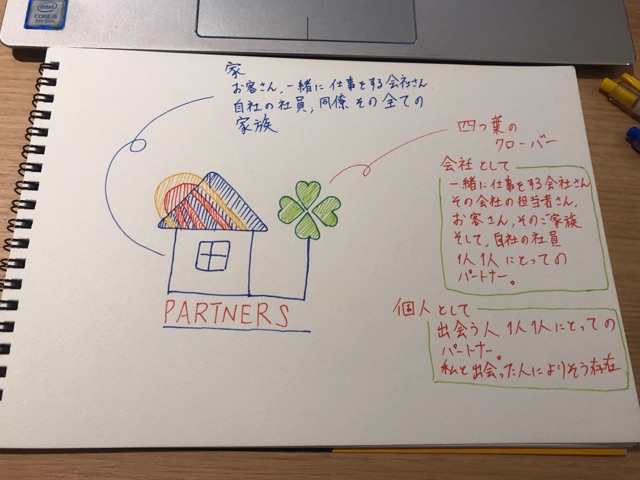 intel
CORE i5
8th Gen
家
お客さん、一緒に仕事をする会社さん
自社の社員、同僚 その全ての
家族
四つ葉の
クローバー
会社として
一緒に仕事をする会社さん
その会社の担当者さん、
お客さん、そのご家族
そして、自社の社員
1人1人にとっての
パートナー。
PARTNERS
個人として
出会う人 1人1人にとっての
パートナー。
私と出会った人によりそう存在